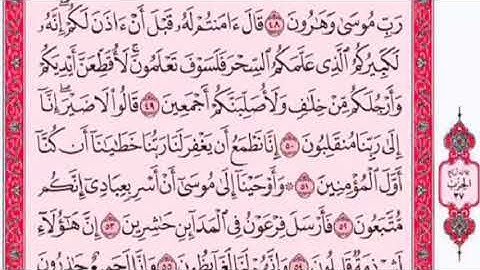 رَبِّ مُوسَىٰ وَهَٰرُونَ ٤٨ قَالَ ءَامَنتُمْ لَهُۥ قَبْلَ أَنْ ءَاذَنَ لَكُمْ إِنَّهُۥ
لَكَبِيرُكُمُ ٱلَّذِى عَلَّمَكُمُ ٱلسِّحْرَ فَلَسَوْفَ تَعْلَمُونَ لَأُقَطِّعَنَّ أَيْدِيَكُمْ
وَأَرْجُلَكُم مِّنْ خِلَٰفٍ وَلَأُصَلِّبَنَّكُمْ أَجْمَعِينَ ٤٩ قَالُوا۟ لَا ضَيْرَ إِنَّآ
إِلَىٰ رَبِّنَا مُنقَلِبُونَ ٥٠ إِنَّا نَطْمَعُ أَن يَغْفِرَ لَنَا رَبُّنَا خَطَٰيَٰنَآ أَن كُنَّآ
أَوَّلَ ٱلْمُؤْمِنِينَ ٥١ ۞ وَأَوْحَيْنَآ إِلَىٰ مُوسَىٰٓ أَنْ أَسْرِ بِعِبَادِىٓ إِنَّكُم
مُّتَّبَعُونَ ٥٢ فَأَرْسَلَ فِرْعَوْنُ فِى ٱلْمَدَآئِنِ حَٰشِرِينَ ٥٣ إِنَّ هَٰٓؤُلَآءِ
لَشِرْذِمَةٌ قَلِيلُونَ ٥٤ وَإِنَّهُمْ لَنَا لَغَآئِظُونَ ٥٥ وَإِنَّا لَجَمِيعٌ حَٰذِرُونَ
الحزب
٣٧